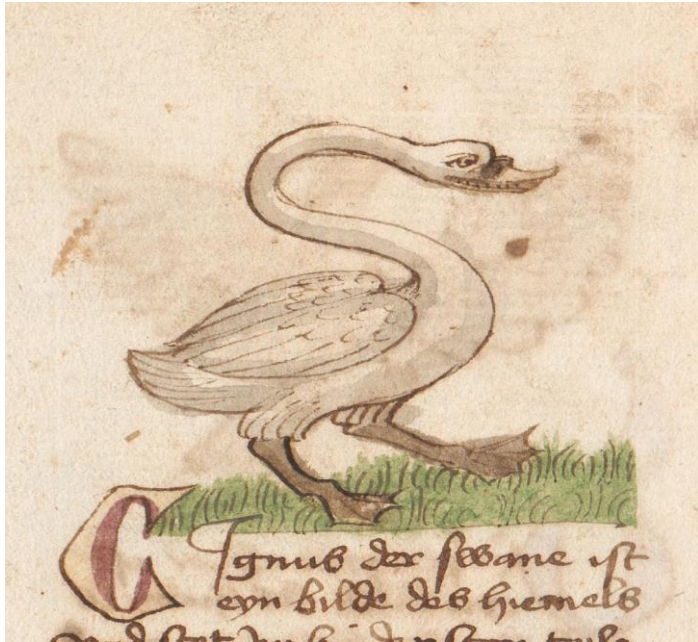 Cignus der swane ist
eyn bilde des hiemels